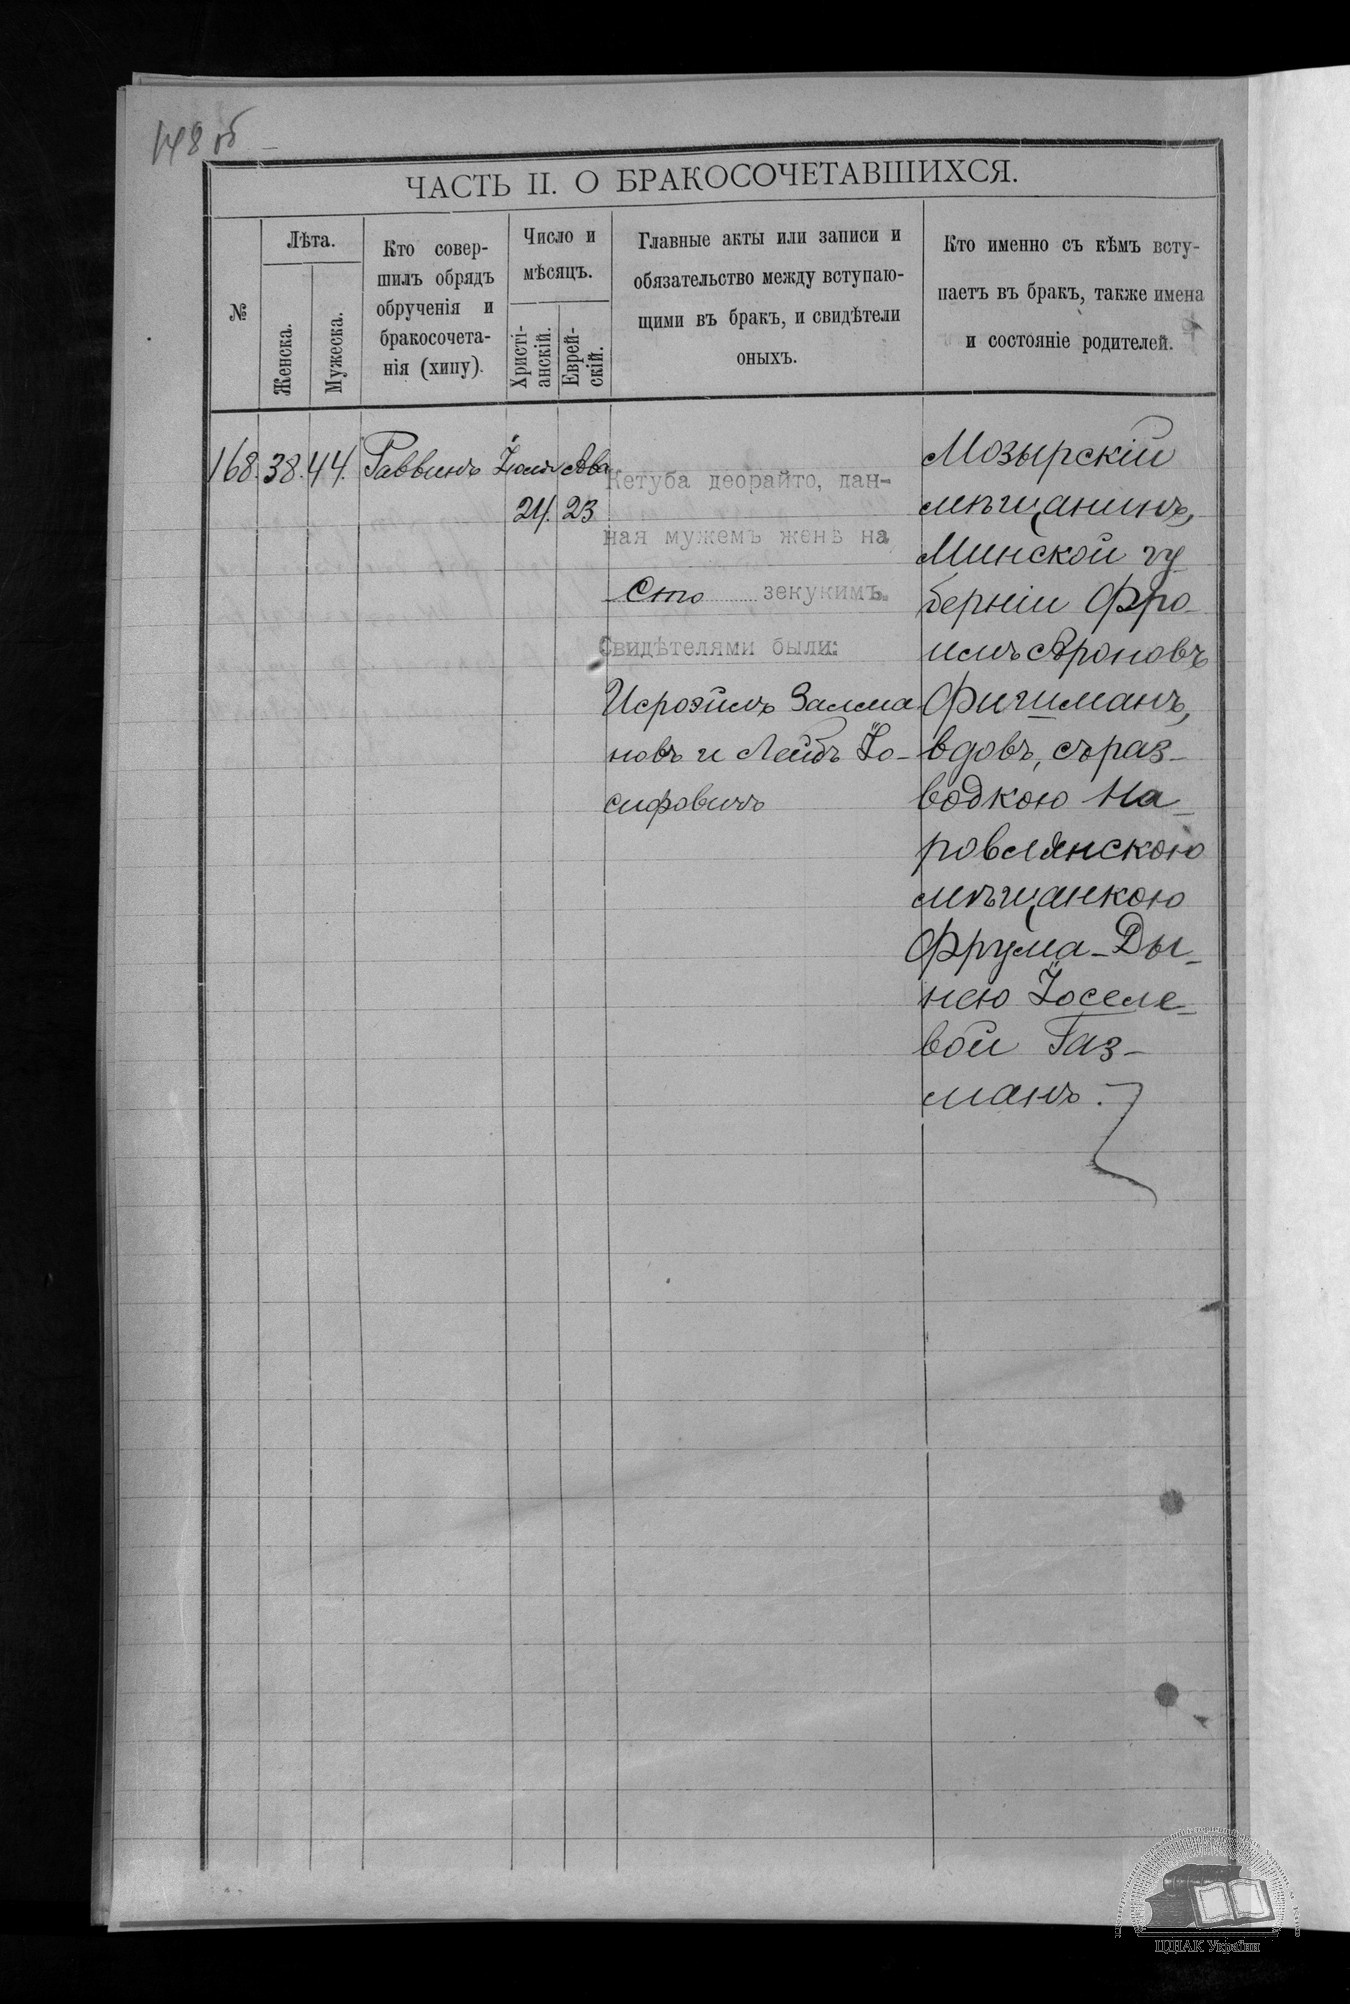 148 об
ЧАСТЬ II. О БРАКОСОЧЕТАВШИХСЯ.
№
Лѣта.
Женска.
Мужеска.
Кто совер-
шилъ обрядъ
обрученія и
бракосочета-
нія (хипу).
Число и
мѣсяцъ.
Христі-
анскій.
Еврей-
скій.
Главные акты или записи и
обязательство между вступаю-
щими въ бракъ, и свидѣтели
оныхъ.
Кто именно съ кѣмъ всту-
паетъ въ бракъ, также имена
и состояніе родителей.
168. 38. 44. Раввинъ Іюля Ава
24. 23
Кетуба деорайто, дан-
ная мужемъ женѣ на
Сто зекукимъ.
Свидѣтелями были:
Исроэйлъ Залма
новъ и Лейбъ Іо-
сифовичъ
Мозырскій
мѣщанинъ,
Минской гу
берніи Фро-
имъ Ароновъ
Фишманъ,
вдовъ, съ раз-
водкою На-
ровлянскою
мѣщанкою
Фрума-Ды-
нею Іоселе-
вой Газ-
манъ.
ЦДІАК України